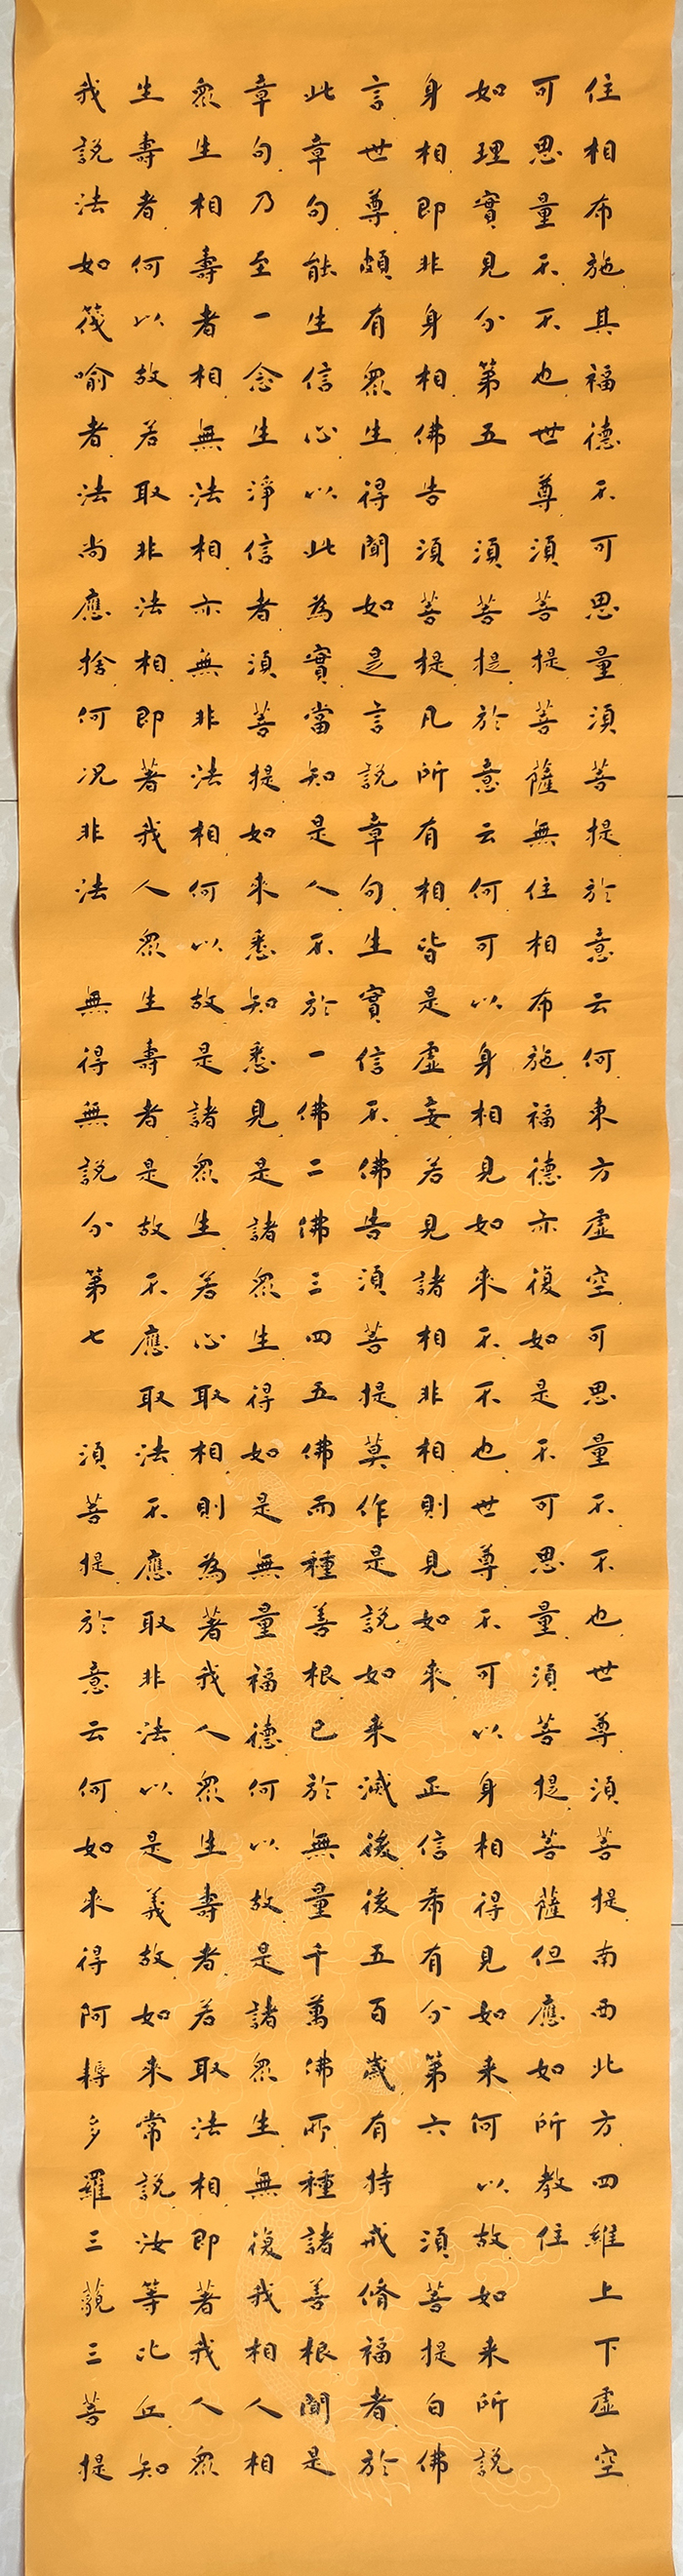 住相布施其福德不可思量須菩提於意云何東方虛空可思量不不也世尊須菩提南西北方四維上下虛空
可思量不不也世尊須菩提菩薩無住相布施福德亦復如是不可思量須菩提菩薩但應如所教住
如理實見分第五 須菩提於意云何可以身相見如來不不也世尊不可以身相得見如来何以故如来所說
身相即非身相佛告須菩提凡所有相皆是虛妄若見諸相非相則見如來 正信希有分第六 須菩提白佛
言世尊頗有眾生得聞如是言說章句生實信不佛告須菩提莫作是說如来滅後後五百歲有持戒脩福者於
此章句能生信心以此為實當知是人不於一佛二佛三四五佛而種善根已於無量千萬佛所種諸善根聞是
章句乃至一念生淨信者須菩提如来悉知悉見是諸眾生得如是無量福德何以故是諸眾生無復我相人相
眾生相壽者相無法相亦無非法相何以故是諸眾生若心取相則為著我人眾生壽者若取法相即著我人眾
生壽者何以故若取非法相即著我人眾生壽者是故不應取法不應取非法以是義故如来常說汝等比丘知
我說法如筏喻者法尚應捨何況非法 無得無說分第七 須菩提於意云何如來得阿耨多羅三藐三菩提